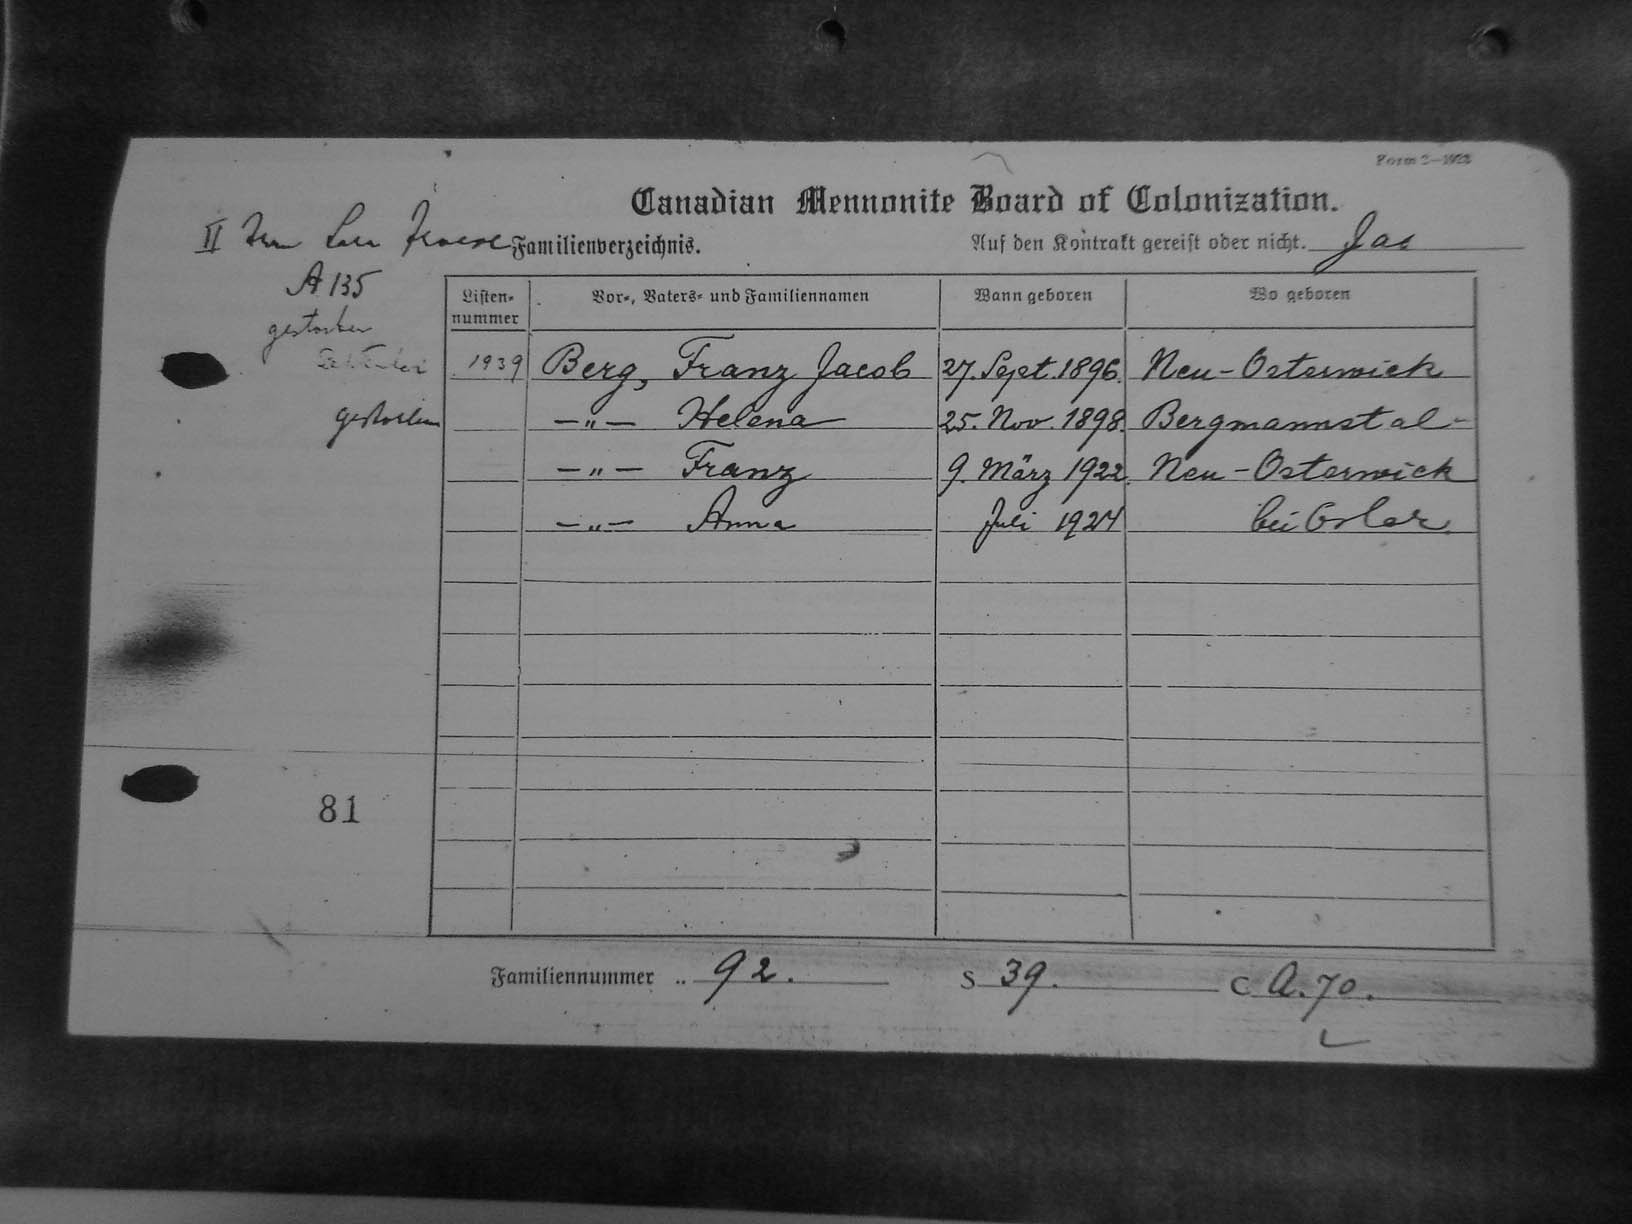 Form 2—1923
Canadian Mennonite Board of Colonization.
II
Familienverzeichnis. Auf den Kontrakt gereist oder nicht. Jac
A 135
gestorben
Listen-nummer Vor-, Vaters- und Familiennamen Wann geboren Wo geboren
1939 Berg, Franz Jacob 27. Sept. 1896. Neu-Osterwick
gestorben —"— Helena 25. Nov. 1898. Bergmannstal
—"— Franz 9. März 1922. Neu-Osterwick
—"— Anna Juli 1924 bei Osler
81
Familiennummer .. 92. S 39. C A. 70.